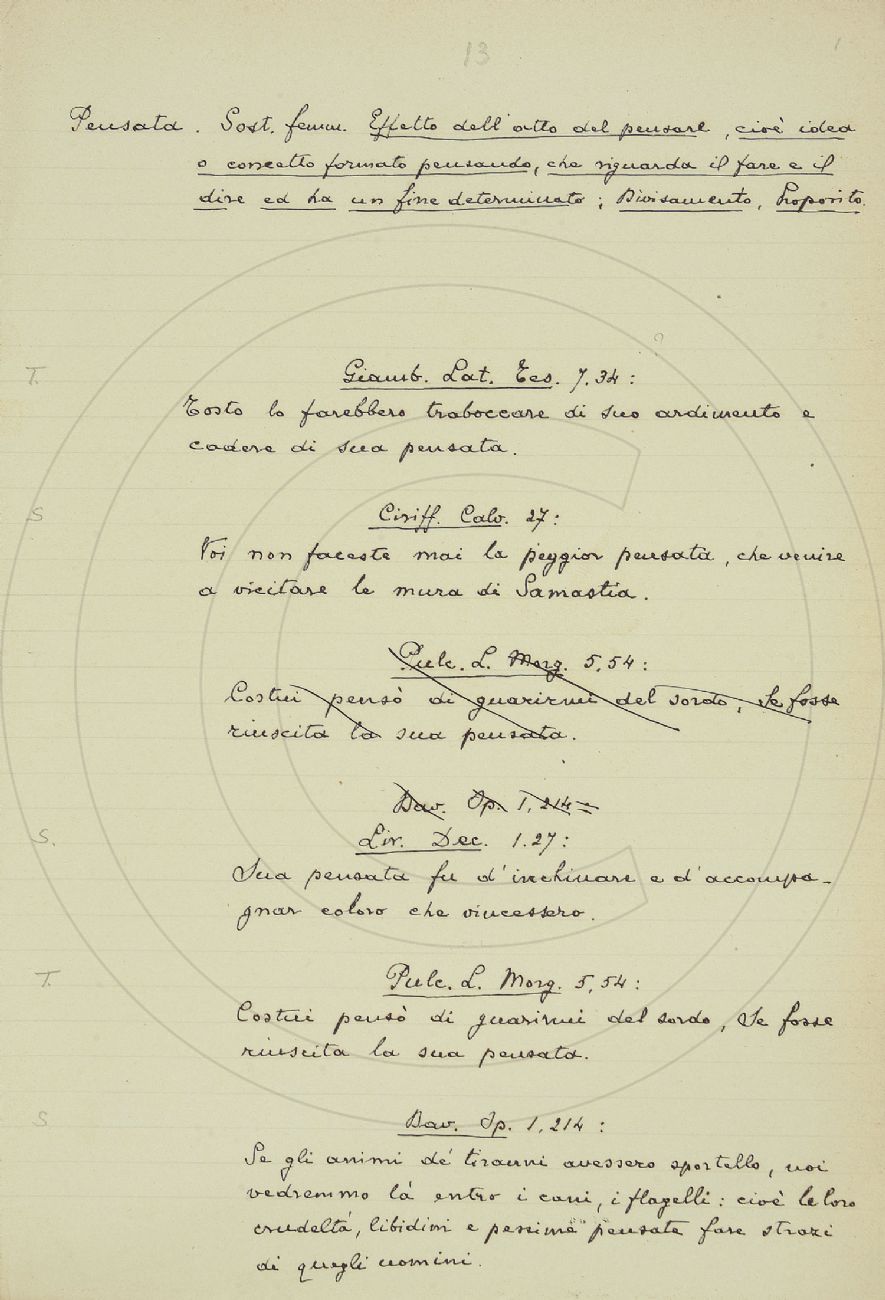 13
1
Pensata. Sost. femm. Effetto dell'atto del pensare, cioè idea
o concetto formato pensando, che riguarda il fare e il
dire ed ha un fine determinato; Divisamento, Proposito.
?
T. Giamb. Lat. Tes. 7.34:
Tosto lo farebbero traboccare di suo ardimento e
cadere di sua pensata.
S Ciriff. Calv. 27:
Voi non faceste mai la peggior pensata, che venire
a vicitare le mura di Samastia.
Pulc. L. Morg. 5,54:
Costui pensò di guarirmi del sordo, Se fosse
riuscita la sua pensata.
Dav. Op. 1,214=
S. Liv. Dec. 1.27:
Sua pensata fu d'inchinare e d'accompa-
gnar coloro che vincessero.
T. Pulc. L. Morg. 5,54:
Costui pensò di guarirmi del sordo, Se fosse
riuscita la sua pensata.
S Dav. Op. 1,214:
Se gli animi de' tiranni avessero sportello, noi
vedremmo là entro i cani, i flagelli: cioè le loro
crudeltà, libidini e pessime pensate fare strazi
di quegli uomini.